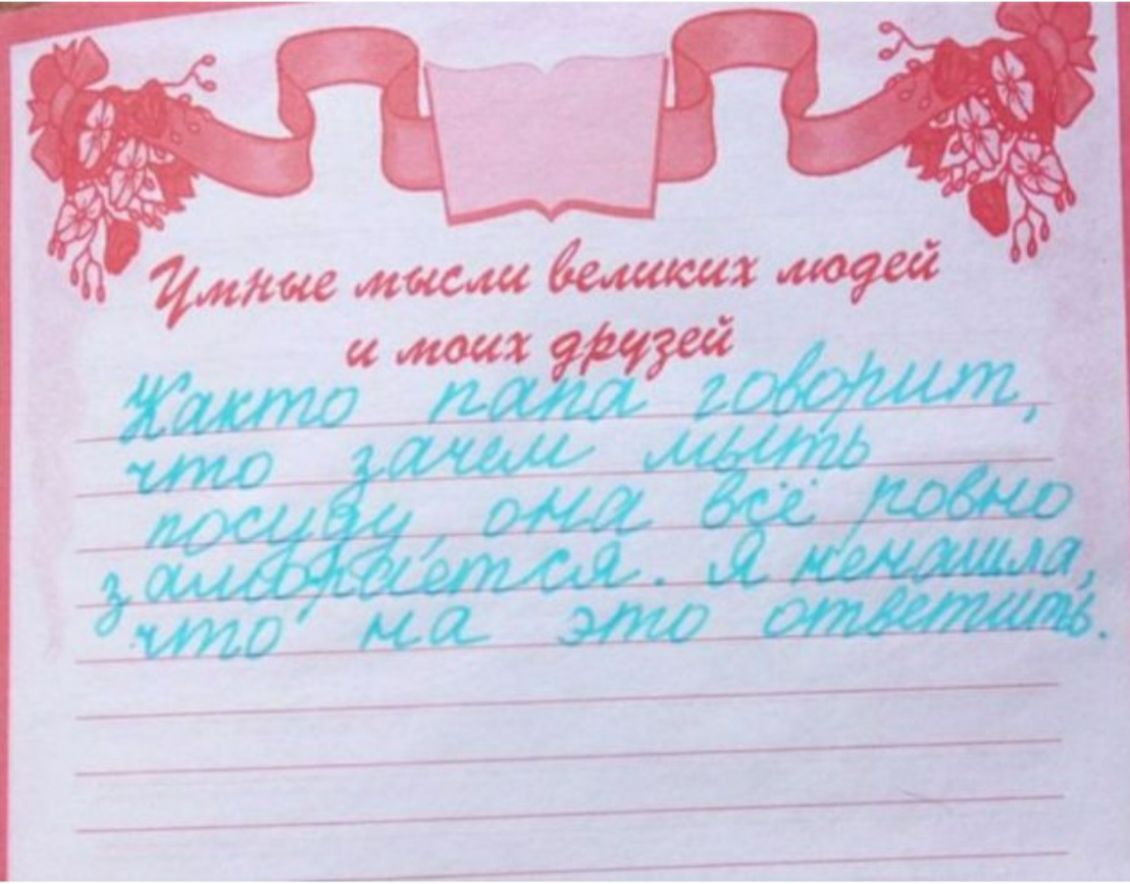 Умные мысли великих людей
и моих друзей
Както папа говорит,
что зачем мыть
посуду, она всё ровно
замарается. Я ненашла,
что на это ответить.